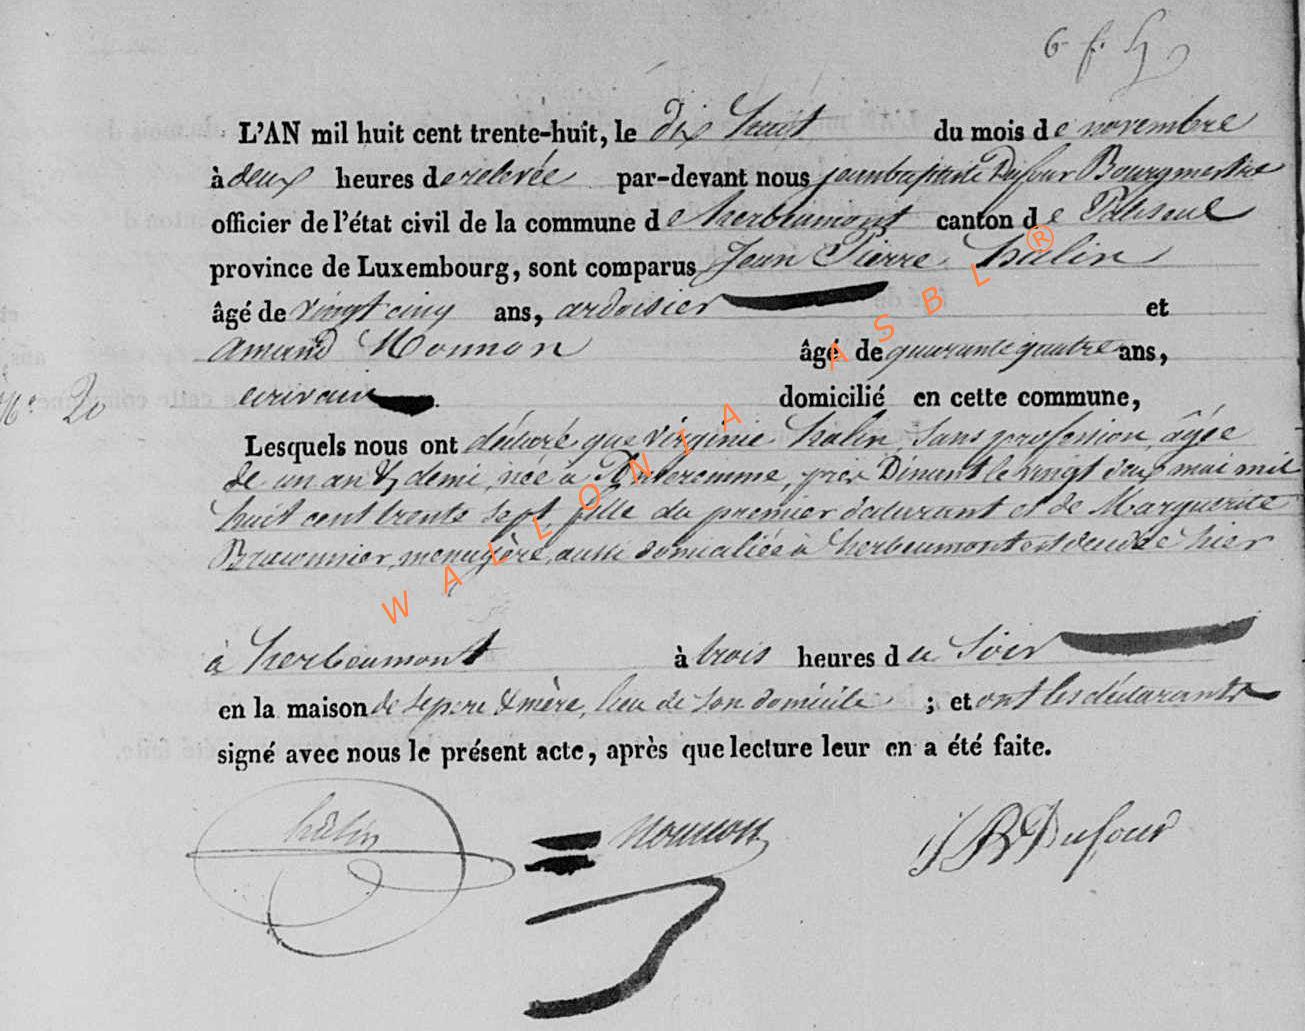 6 f.
L'AN mil huit cent trente-huit, le dix huit du mois de novembre
à deux heures de relevée par-devant nous jeanbaptiste Dufour Bourgmestre
officier de l'état civil de la commune de herbeumont canton de Paliseul
province de Luxembourg, sont comparus Jean Pierre halin
âgé de vingt cinq ans, ardoisier et
amand Nonnon âgé de quarante quatre ans,
N° 20 ecrivain. domicilié en cette commune,
Lesquels nous ont déclaré que virginie halin, sans profession, âgée
de un an & demi, née à Anseremme, près Dinant le vingt deux mai mil
huit cent trente sept, fille du premier déclarant et de Marguerite
menagère, aussi domiciliée à herbeumont est décédée hier
à herbeumont à trois heures du soir
en la maison de ses pere & mère, lieu de son domicile ; et ont les déclarants
signé avec nous le présent acte, après que lecture leur en a été faite.
halin Nonnon JB Dufour
WALLONIA ASBL ®